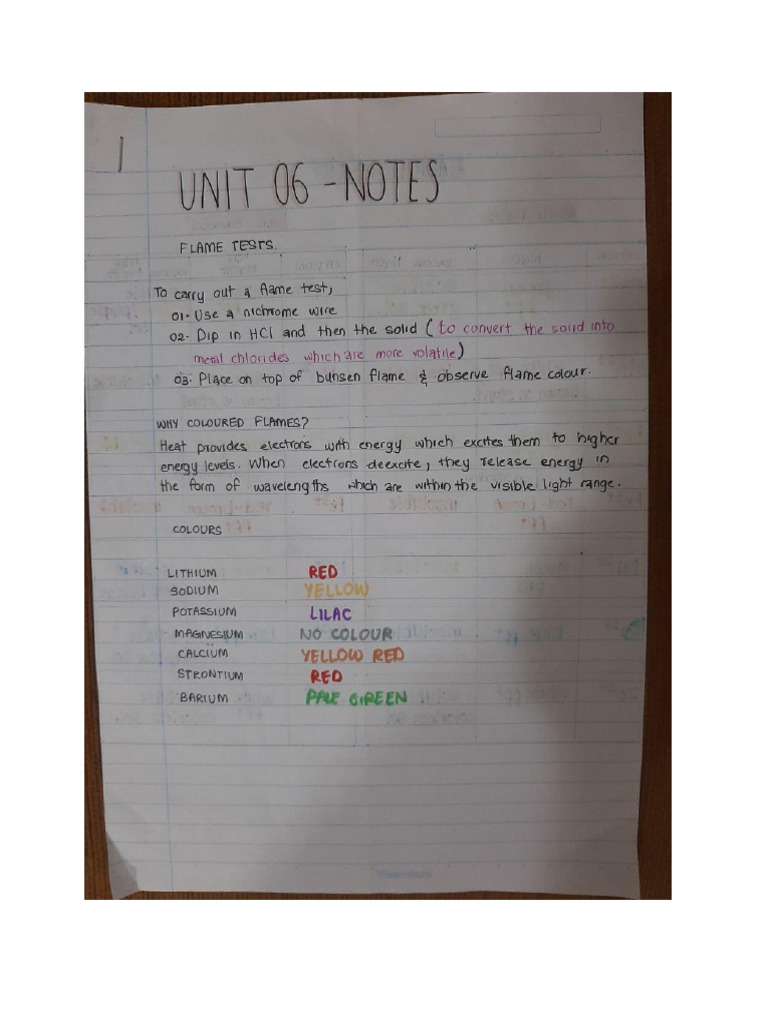 1
UNIT 06 - NOTES
FLAME TESTS.
To carry out a flame test,
01- Use a nichrome wire
02- Dip in HCl and then the solid (to convert the solid into
metal chlorides which are more volatile)
03. Place on top of bunsen flame & observe flame colour.
WHY COLOURED FLAMES?
Heat provides electrons with energy which excites them to higher
energy levels. When electrons deexcite, they release energy in
the form of wavelengths which are within the visible light range.
COLOURS
LITHIUM RED
SODIUM YELLOW
POTASSIUM LILAC
MAGNESIUM NO COLOUR
CALCIUM YELLOW RED
STRONTIUM RED
BARIUM PALE GREEN